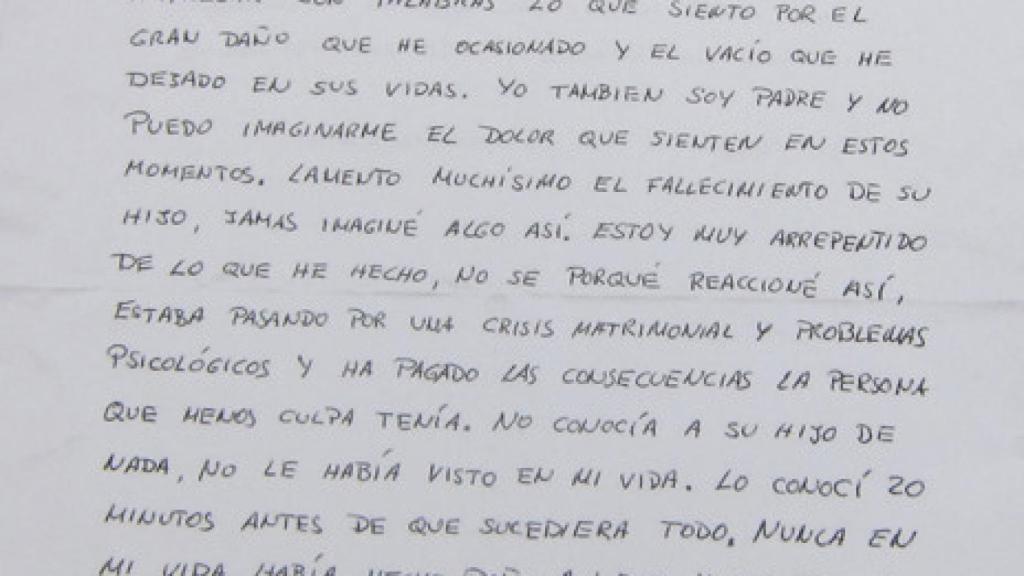 CON PALABRAS LO QUE SIENTO POR EL
GRAN DAÑO QUE HE OCASIONADO Y EL VACÍO QUE HE
DEJADO EN SUS VIDAS. YO TAMBIEN SOY PADRE Y NO
PUEDO IMAGINARME EL DOLOR QUE SIENTEN EN ESTOS
MOMENTOS. LAMENTO MUCHÍSIMO EL FALLECIMIENTO DE SU
HIJO, JAMAS IMAGINÉ ALGO ASÍ. ESTOY MUY ARREPENTIDO
DE LO QUE HE HECHO, NO SE PORQUÉ REACCIONÉ ASÍ,
ESTABA PASANDO POR UNA CRISIS MATRIMONIAL Y PROBLEMAS
PSICOLÓGICOS Y HA PAGADO LAS CONSECUENCIAS LA PERSONA
QUE MENOS CULPA TENÍA. NO CONOCÍA A SU HIJO DE
NADA, NO LE HABÍA VISTO EN MI VIDA. LO CONOCÍ 20
MINUTOS ANTES DE QUE SUCEDIERA TODO. NUNCA EN
MI VIDA HABÍA